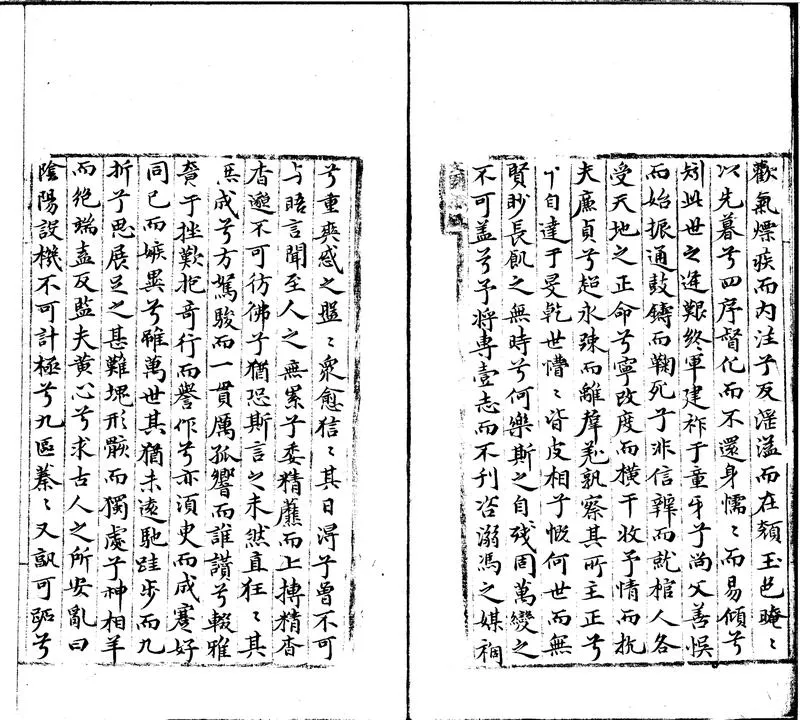 歡氣爍疾而内注兮反滛溢而在頯玉色晻〻
以先暮兮四序督化而不還身懦〻而易傾兮
矧此世之逢艱終軍建祚于童牙兮尚父善悞
而始振通鼓鑄而鞠死兮非信辤而就棺人各
受天地之正命兮寧改度而横干收予情而抗
夫廉貞兮超永竦而離羣羌孰察其所主正兮
下自達于旻乾世懵〻皆皮相兮慨何世而無
賢眇長飢之無時兮何樂斯之自残固萬變之
不可盖兮予将專壹志而不刋咨溺馮之媒禍
兮重爽惑之盤〻衆愈狺〻其日淂兮曾不可
与晤言聞至人之無累兮委精䕥而上摶精杳
杳邈不可彷彿兮猶恐斯言之未然直狂〻其
無成兮方駑駿而一貫厲孤響而誰讚兮輟雅
賣于挫歎抱竒行而譽作兮亦湏史而成蹇好
同已而嫉異兮雖萬世其猶未逺馳跬步而九
折兮思展足之甚難塊形骸而獨處兮神相羊
而絶端盍反監夫黄心兮求古人之所安亂曰
隂陽設機不可計極兮九區蓁〻又孰可跖兮